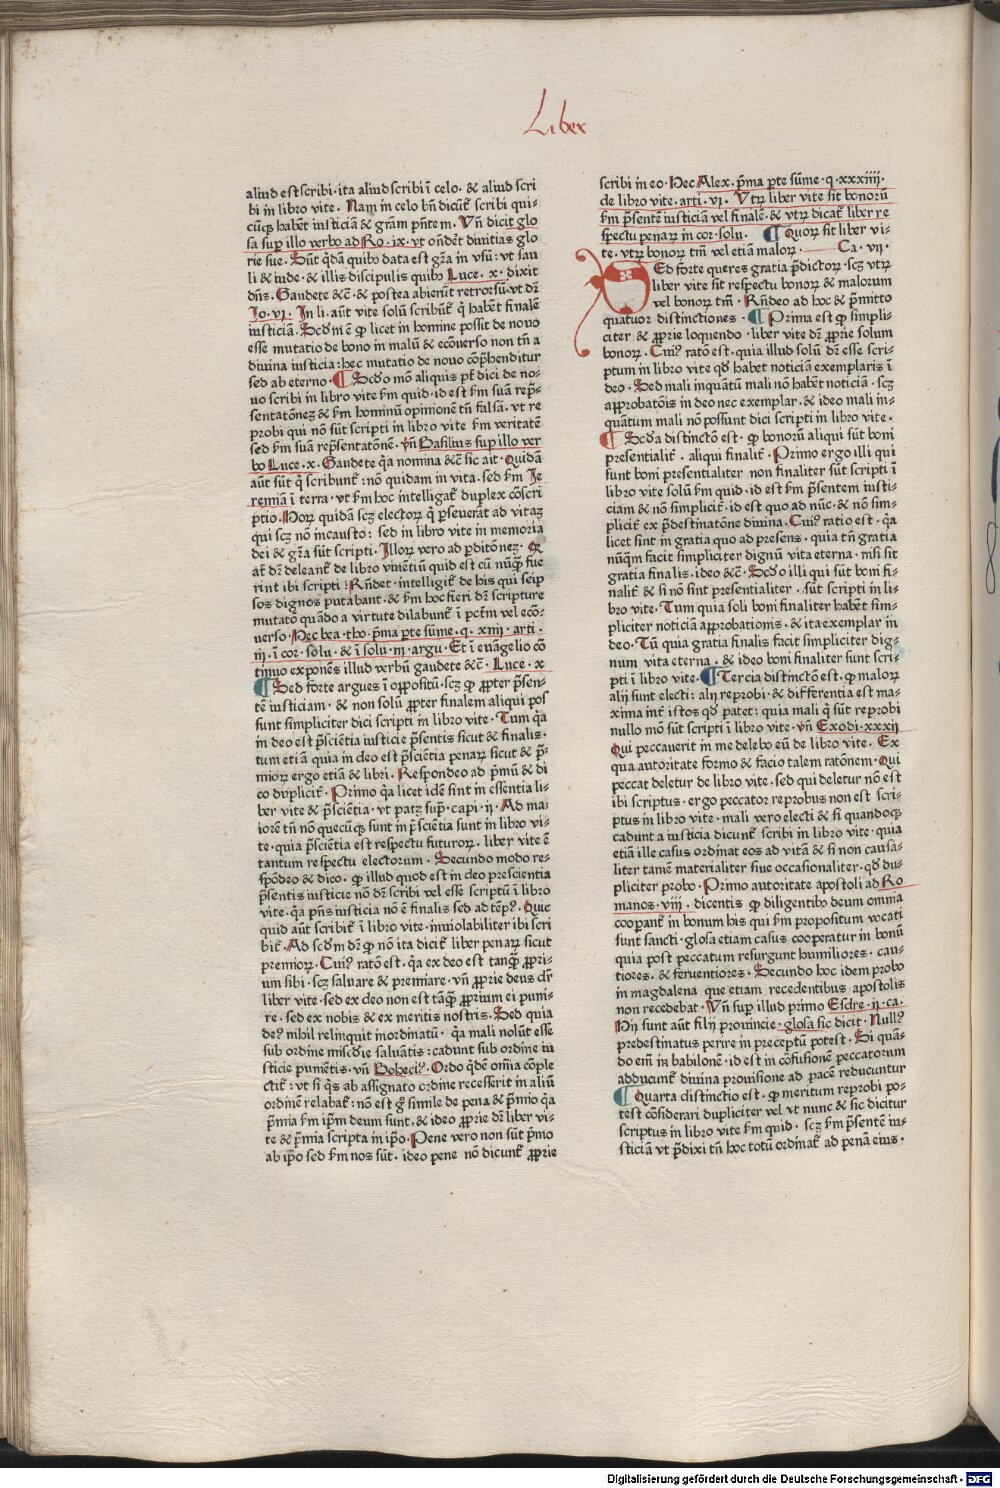 Liber
aliud est scribi. ita aliud scribi ī celo. & aliud scri
bi in libro vite. Nam in celo bñ dicūt́ scribi qui-
cūq; habēt iusticiā & grām pñtem. Vñ dicit glo
sa sup illo verbo ad Ro. ix. vt oñdēt diuitias glo
rie sue. Sūt qdā quibꝰ data est gr̄a in vsū: vt sau
li & iude. & illis discipulis quibꝰ Luce. x. dixit
dñs. Gaudete &c̄. & postea abierūt retrorsū. vt dr̄
Jo. vj. In li. aūt vite solū scribūt́ q̇ habēt finalē
iusticiā. Scd̓m ē ꝙ licet in homine possit de nouo
esse mutatio de bono in malū & ecōuerso non tñ a
diuina iusticia: hec mutatio de nouo cōp̄henditur
sed ab eterno. ¶ Scd̓o mō aliquis pt́ dici de no-
uo scribi in libro vite fm quid. id est fm suā rep̄-
sentatōnez & fm hominū opinionē tñ falsā. vt re
probi qui nō sūt scripti in libro vite fm veritatē
sed fm suā rep̄sentatōnē. vñ Basilius sup illo ver
bo Luce. x. Gaudete q̄a nomina &c̄ sic ait. Quidā
aūt sūt q̇ scribunt́. nō quidam in vita. sed fm Je
remiā ī terra. vt fm hoc intelligat́ duplex cōscri
ptio. Horꝝ quidā scz electorꝝ q̇ p̱seuerāt ad vitaz
qui scz nō incausto: sed in libro vite in memoria
dei & gr̄a sūt scripti. Illorꝝ vero ad p̱ditōnez. Qr̄
aūt dr̄ deleant́ de libro viuētiū quid est cū nūq̄ fue
rint ibi scripti: Rñdet. intelligit́ de his qui seip
sos dignos putabant. & fm hoc fieri dr̄ scripture
mutatō quādo a virtute dilabunt́ ī pctm̄ vel ecō-
uerso. Hec bea. tho. p̄ma p̱te sūme. q. xxiiij. arti.
iij. ī cor. solu. & ī solu. iij. argu. Et ī euāgelio cō
tinuo exponēs illud verbū gaudete &c̄. Luce. x
¶ Sed forte argues ī oppositū. scz ꝙ ꝓpter p̄sen-
tē iusticiam. & non solū ꝓpter finalem aliqui pos
sunt simpliciter dici scripti in libro vite. Tum q̄a
in deo est p̄sciētia iusticie p̄sentis sicut & finalis.
tum etiā quia in deo est p̄sciētia penarꝝ sicut & p̄-
miorꝝ ergo etiā & libri. Respondeo ad p̄mū & di
co duplicit́. Primo q̄a licet idē sint in essentia li-
ber vite & p̄sciētia. vt patz sup̄. capi. ij. Ad ma-
iorē tñ nō quecūq; sunt in p̄sciētia sunt in libro vi-
te. quia p̄sciētia est respectu futurorꝝ. liber vite ē
tantum respectu electorum. Secundo modo re-
spōdeo & dico. ꝙ illud quod est in deo prescientia
p̄sentis iusticie nō dr̄ scribi vel esse scriptū ī libro
vite. q̄a pñs iusticia nō ē finalis sed ad tēpꝰ. Quic
quid aūt scribit́ ī libro vite. inuiolabiliter ibi scri
bit́. Ad scd̓m dr̄ ꝙ nō ita dicit́ liber penarꝝ sicut
premiorꝝ. Cuiꝰ ratō est. q̄a ex deo est tanq̄ ꝓpri-
um sibi. scz saluare & premiare. vñ ꝓprie deus dr̄
liber vite. sed ex deo non est tāq̄ ꝓprium ei puni-
re. sed ex nobis & ex meritis nostris. Sed quia
deꝰ nihil relinquit inordinatū. q̄a mali nolūt esse
sub ordine misc̄die saluātis: cadunt sub ordine iu
sticie puniētis. vñ Boheciꝰ. Ordo q̇dē om̄ia cōple
ctit́: vt si q̇s ab assignato ordine recesserit in aliū
ordinē relabat́: nō est gͦ simile de pena & p̄mio q̄a
p̄mia fm ip̄m deum sunt. & ideo ꝓprie dr̄ liber vi-
te & p̄mia scripta in ip̄o. Pene vero non sūt p̄mo
ab ip̄o sed fm nos sūt. ideo pene nō dicunt́ ꝓprie
scribi in eo. Hec Alex. p̄ma p̱te sūme. q. xxxiiij.
de libro vite. arti. vj. Vtrꝝ liber vite sit bonorū
fm p̄sentē iusticiā vel finalē. & vtrꝝ dicat́ liber re
spectu penarꝝ in cor. solu. ¶ Quorꝝ sit liber vi-
te. vtrꝝ bonorꝝ tm̄ vel etiā malorꝝ. Ca. vij.
Sed forte queres gratia p̄dictorꝝ. scz vtrꝝ
liber vite sit respectu bonorꝝ & malorum
vel bonorꝝ tm̄. Rñdeo ad hoc & p̄mitto
quatuor distinctiones. ¶ Prima est ꝙ simpli-
citer & ꝓprie loquendo. liber vite dr̄ ꝓprie solum
bonorꝝ. Cuiꝰ ratō est. quia illud solū dr̄ esse scri-
ptum in libro vite qd̓ habet noticiā exemplaris ī
deo. Sed mali inquātū mali nō habēt noticiā. scz
approbatōis in deo nec exemplar. & ideo mali in-
quātum mali nō possunt dici scripti in libro vite.
¶ Scd̓a distinctō est. ꝙ bonorū aliqui sūt boni
presentialit́. aliqui finalit́. Primo ergo illi qui
sunt boni presentialiter non finaliter sūt scripti ī
libro vite solū fm quid. id est fm p̄sentem iusti-
ciam & nō simplicit́. id est quo ad nūc. & nō sim-
plicit́ ex p̄destinatōne diuina. Cuiꝰ ratio est. q̄a
licet sint in gratia quo ad presens. quia tñ gratia
nūq̄m facit simpliciter dignū vita eterna. nisi sit
gratia finalis. ideo &c̄. Scd̓o illi qui sūt boni fi-
nalit́ & si nō sint presentialiter. sūt scripti in li-
bro vite. Tum quia soli boni finaliter habēt sim-
pliciter noticiā approbationis. & ita exemplar in
deo. Tū quia gratia finalis facit simpliciter dig-
num vita eterna. & ideo boni finaliter sunt scri-
pti ī libro vite. ¶ Tercia distinctō est. ꝙ malorꝝ
alij sunt electi: alij reprobi. & differentia est ma-
xima int́ istos qd̓ patet: quia mali q̇ sūt reprobi
nullo mō sūt scripti ī libro vite. vñ Exodi. xxxij
Qui peccauerit in me delebo eū de libro vite. Ex
qua autoritate formo & facio talem ratōnem. Qui
peccat deletur de libro vite. sed qui deletur nō est
ibi scriptus. ergo peccator reprobus non est scri-
ptus in libro vite. mali vero electi & si quandoq;
cadunt a iusticia dicunt́ scribi in libro vite. quia
etiā ille casus ordinat eos ad vitā & si non causa-
liter tamē materialiter siue occasionaliter. qd̓ du-
pliciter probo. Primo autoritate apostoli ad Ro
manos. viij. dicentis ꝙ diligentibꝰ deum omnia
cooperant́ in bonum his qui fm propositum vocati
sunt sancti. glosa etiam casus cooperatur in bonū
quia post peccatum resurgunt humiliores. cau-
tiores. & feruentiores. Secundo hoc idem probo
in magdalena que etiam recedentibus apostolis
non recedebat. Vñ sup illud primo Esdre. ij. ca.
Hij sunt aūt filij prouincie. glosa sic dicit. Nullꝰ
predestinatus perire in preceptū potest. Si quā-
do em̄ in babilonē. id est in cōfusionē peccatorum
adducunt́ diuina prouisione ad pacē reducuntur
¶ Quarta distinctio est. ꝙ meritum reprobi po-
test cōsiderari dupliciter vel vt nunc & sic dicitur
scriptus in libro vite fm quid. scz fm p̄sentē iu-
sticiā vt p̄dixi tñ hoc totū ordinat́ ad penā eius.
Digitalisierung gefördert durch die Deutsche Forschungsgemeinschaft - DFG